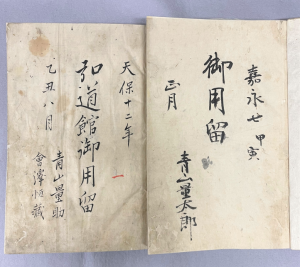 嘉永七 甲寅
御用留
正月
青山量太郎
天保十二年
弘道館御用留
乙丑八月
青山量助
會澤恒藏